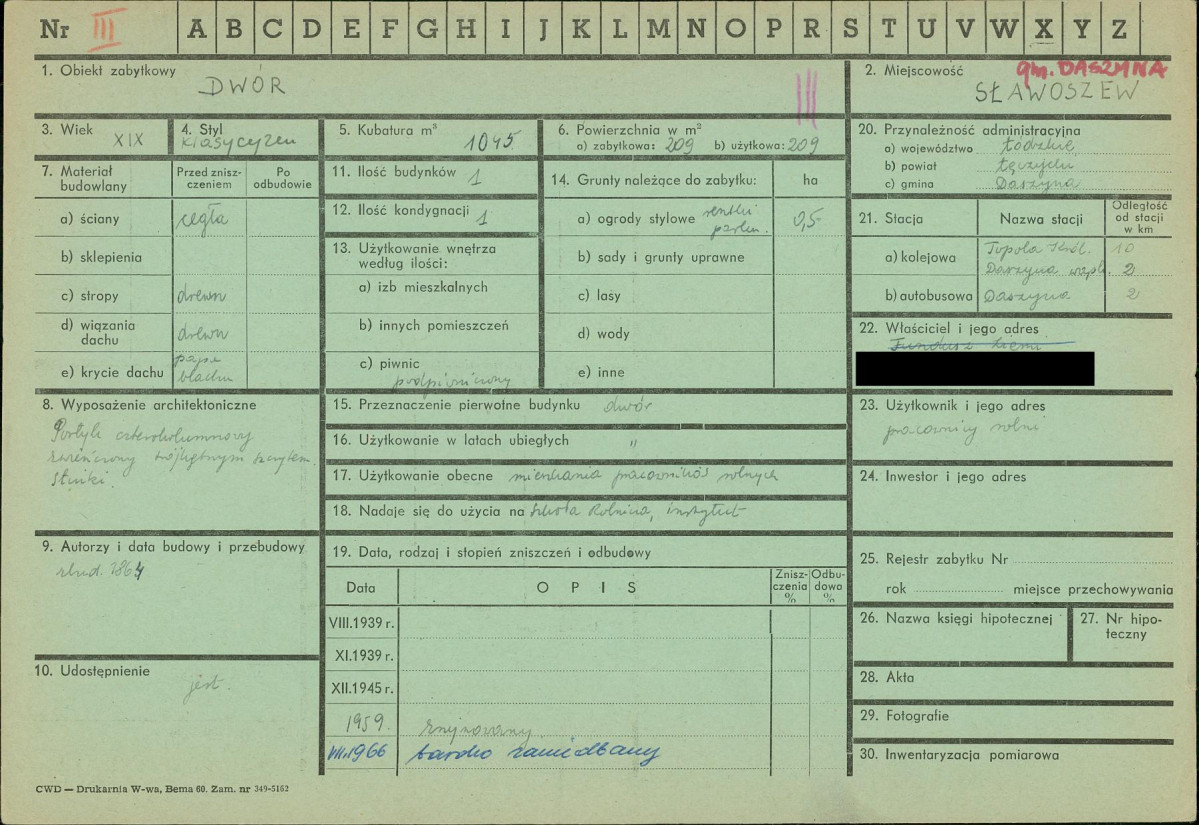 Nr III A B C D E F G H I J K L M N O P R S T U V W X Y Z
1. Obiekt zabytkowy
DWÓR
III
2. Miejscowość
gm. DASZYNA
SŁAWOSZEW
3. Wiek
XIX
4. Styl
klasycyzm
5. Kubatura m³
1045
6. Powierzchnia w m²
a) zabytkowa: 209 b) użytkowa: 209
20. Przynależność administracyjna
a) województwo Łódzkie
b) powiat Łęczycki
c) gmina Daszyna
7. Materiał budowlany
Przed zniszczeniem
Po odbudowie
a) ściany cegła
b) sklepienia
c) stropy drewn
d) wiązania dachu drewn
e) krycie dachu papa blacha
11. Ilość budynków 1
12. Ilość kondygnacji 1
13. Użytkowanie wnętrza
według ilości:
a) izb mieszkalnych
b) innych pomieszczeń
c) piwnic
podpiwniczony
14. Grunty należące do zabytku: ha
a) ogrody stylowe resztki parku. 0,5
b) sady i grunty uprawne
c) lasy
d) wody
e) inne
21. Stacja Nazwa stacji Odległość od stacji w km
a) kolejowa Topola Król. 10
Daszyna wąsk. 2
b) autobusowa Daszyna 2
22. Właściciel i jego adres
Fundusz Ziemi
8. Wyposażenie architektoniczne
Portyk czterokolumnowy
zwieńczony trójkątnym szczytem.
15. Przeznaczenie pierwotne budynku dwór
16. Użytkowanie w latach ubiegłych "
17. Użytkowanie obecne mieszkania pracowników rolnych
18. Nadaje się do użycia na Szkoła Rolnicza, instytut
23. Użytkownik i jego adres
pracownicy rolni
24. Inwestor i jego adres
9. Autorzy i data budowy i przebudowy
zbud. 1864
19. Data, rodzaj i stopień zniszczeń i odbudowy
Data OPIS Zniszczenia % Odbudowa %
VIII.1939 r.
XI.1939 r.
XII.1945 r.
1959. zrujnowany
VIII.1966 bardzo zaniedbany
25. Rejestr zabytku Nr
rok miejsce przechowywania
26. Nazwa księgi hipotecznej
27. Nr hipoteczny
10. Udostępnienie
jest.
28. Akta
29. Fotografie
30. Inwentaryzacja pomiarowa
CWD — Drukarnia W-wa, Bema 60. Zam. nr 349-5162